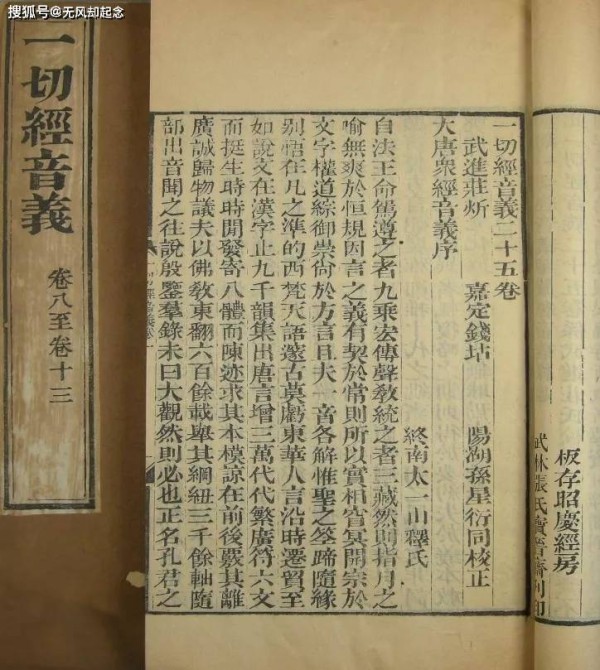 搜狐号@无风却起念
一切經音義
卷八至卷十三
板存昭慶經房
武林張氏寶晉齋刷印
一切經音義二十五卷
武進莊炘 嘉定錢坫 陽湖孫星衍同校正
大唐衆經音義序
終南太一山釋氏
自法王命駕尊之者九乘宏傳聲敎統之者三藏然則指月之
喻無爽於恒規因言之義有契於常則所以實相窅冥開宗於
文字權道綜御崇尙於方言且夫一音各解惟聖之筌蹄隨緣
別悟在凡之準的西梵天語邃古莫虧東華人言沿時遷貿至
如說文在漢字止九千韻集出唐言增三萬代代繁廣符六文
而挺生時時間發寄八體而陳迹求其本模諒在前後覈其離
廣誠歸物議夫以佛敎東翻六百餘載舉其綱紐三千餘軸隨
部出音聞之往說殷鑒羣錄未曰大觀然則必也正名孔君之